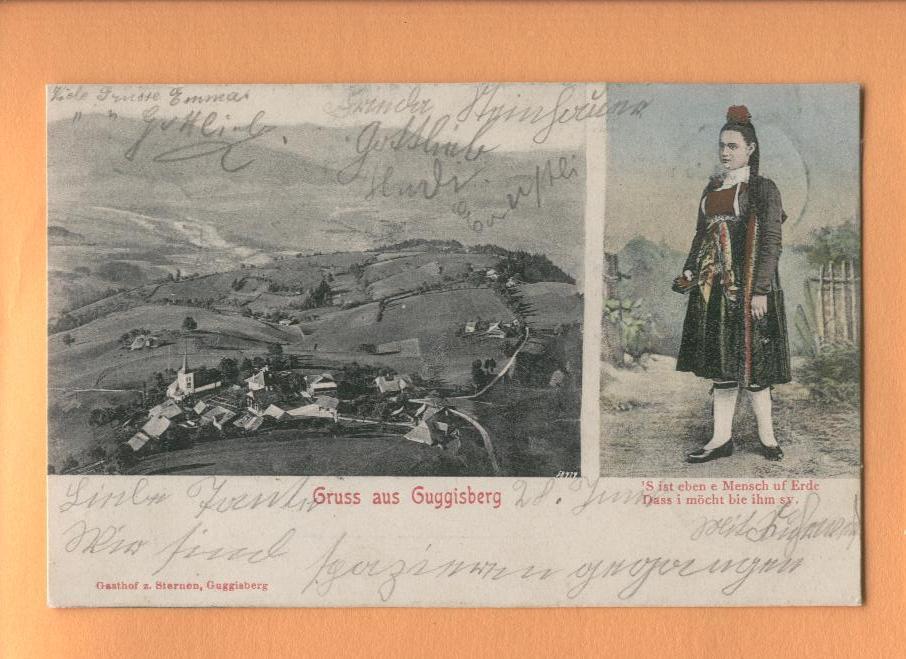 Viele Grüsse Emma
" " Gottlieb.
Frieda Steinhauer
Gottlieb
Gruss aus Guggisberg
'S ist eben e Mensch uf Erde
Dass i möcht bie ihm sy.
Liebe Tante 28. Juni
Wir sind spazieren gegangen
Gasthof z. Sternen, Guggisberg